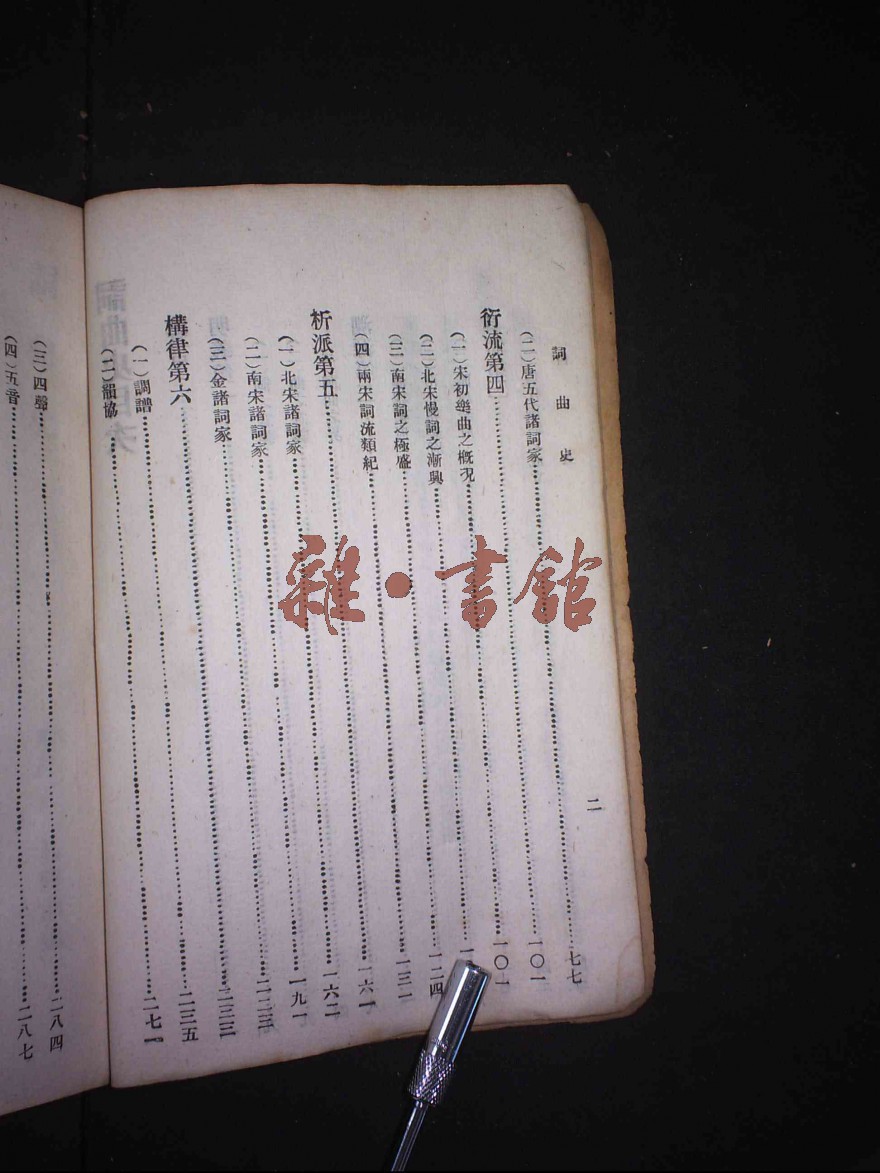 詞曲史
二
（二）唐五代諸詞家……七七
衍流第四……一〇一
（一）宋初樂曲之概况……一〇一
（二）北宋慢詞之漸興……一
（三）南宋詞之極盛……一二四
（四）兩宋詞流類紀……一三一
析派第五……一六一
（一）北宋諸詞家……一六二
（二）南宋諸詞家……一九一
（三）金諸詞家……二二三
構律第六……二三三
（一）調譜……二三五
（二）韻協……二七一
（三）四聲……二八四
（四）五音……二八七
雜·書館